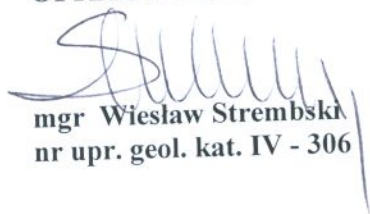 mgr Wiesław Strembski
nr upr. geol. kat. IV - 306